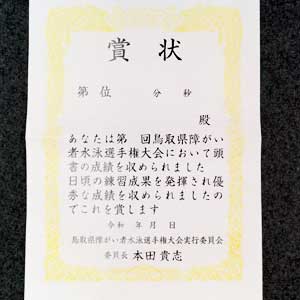 賞状
第 位 分 秒
殿
あなたは第 回鳥取県障がい
者水泳選手権大会において頭
書の成績を収められました
日頃の練習成果を発揮され優
秀な成績を収められましたの
でこれを賞します
令和 年 月 日
鳥取県障がい者水泳選手権大会実行委員会
委員長 本田貴志